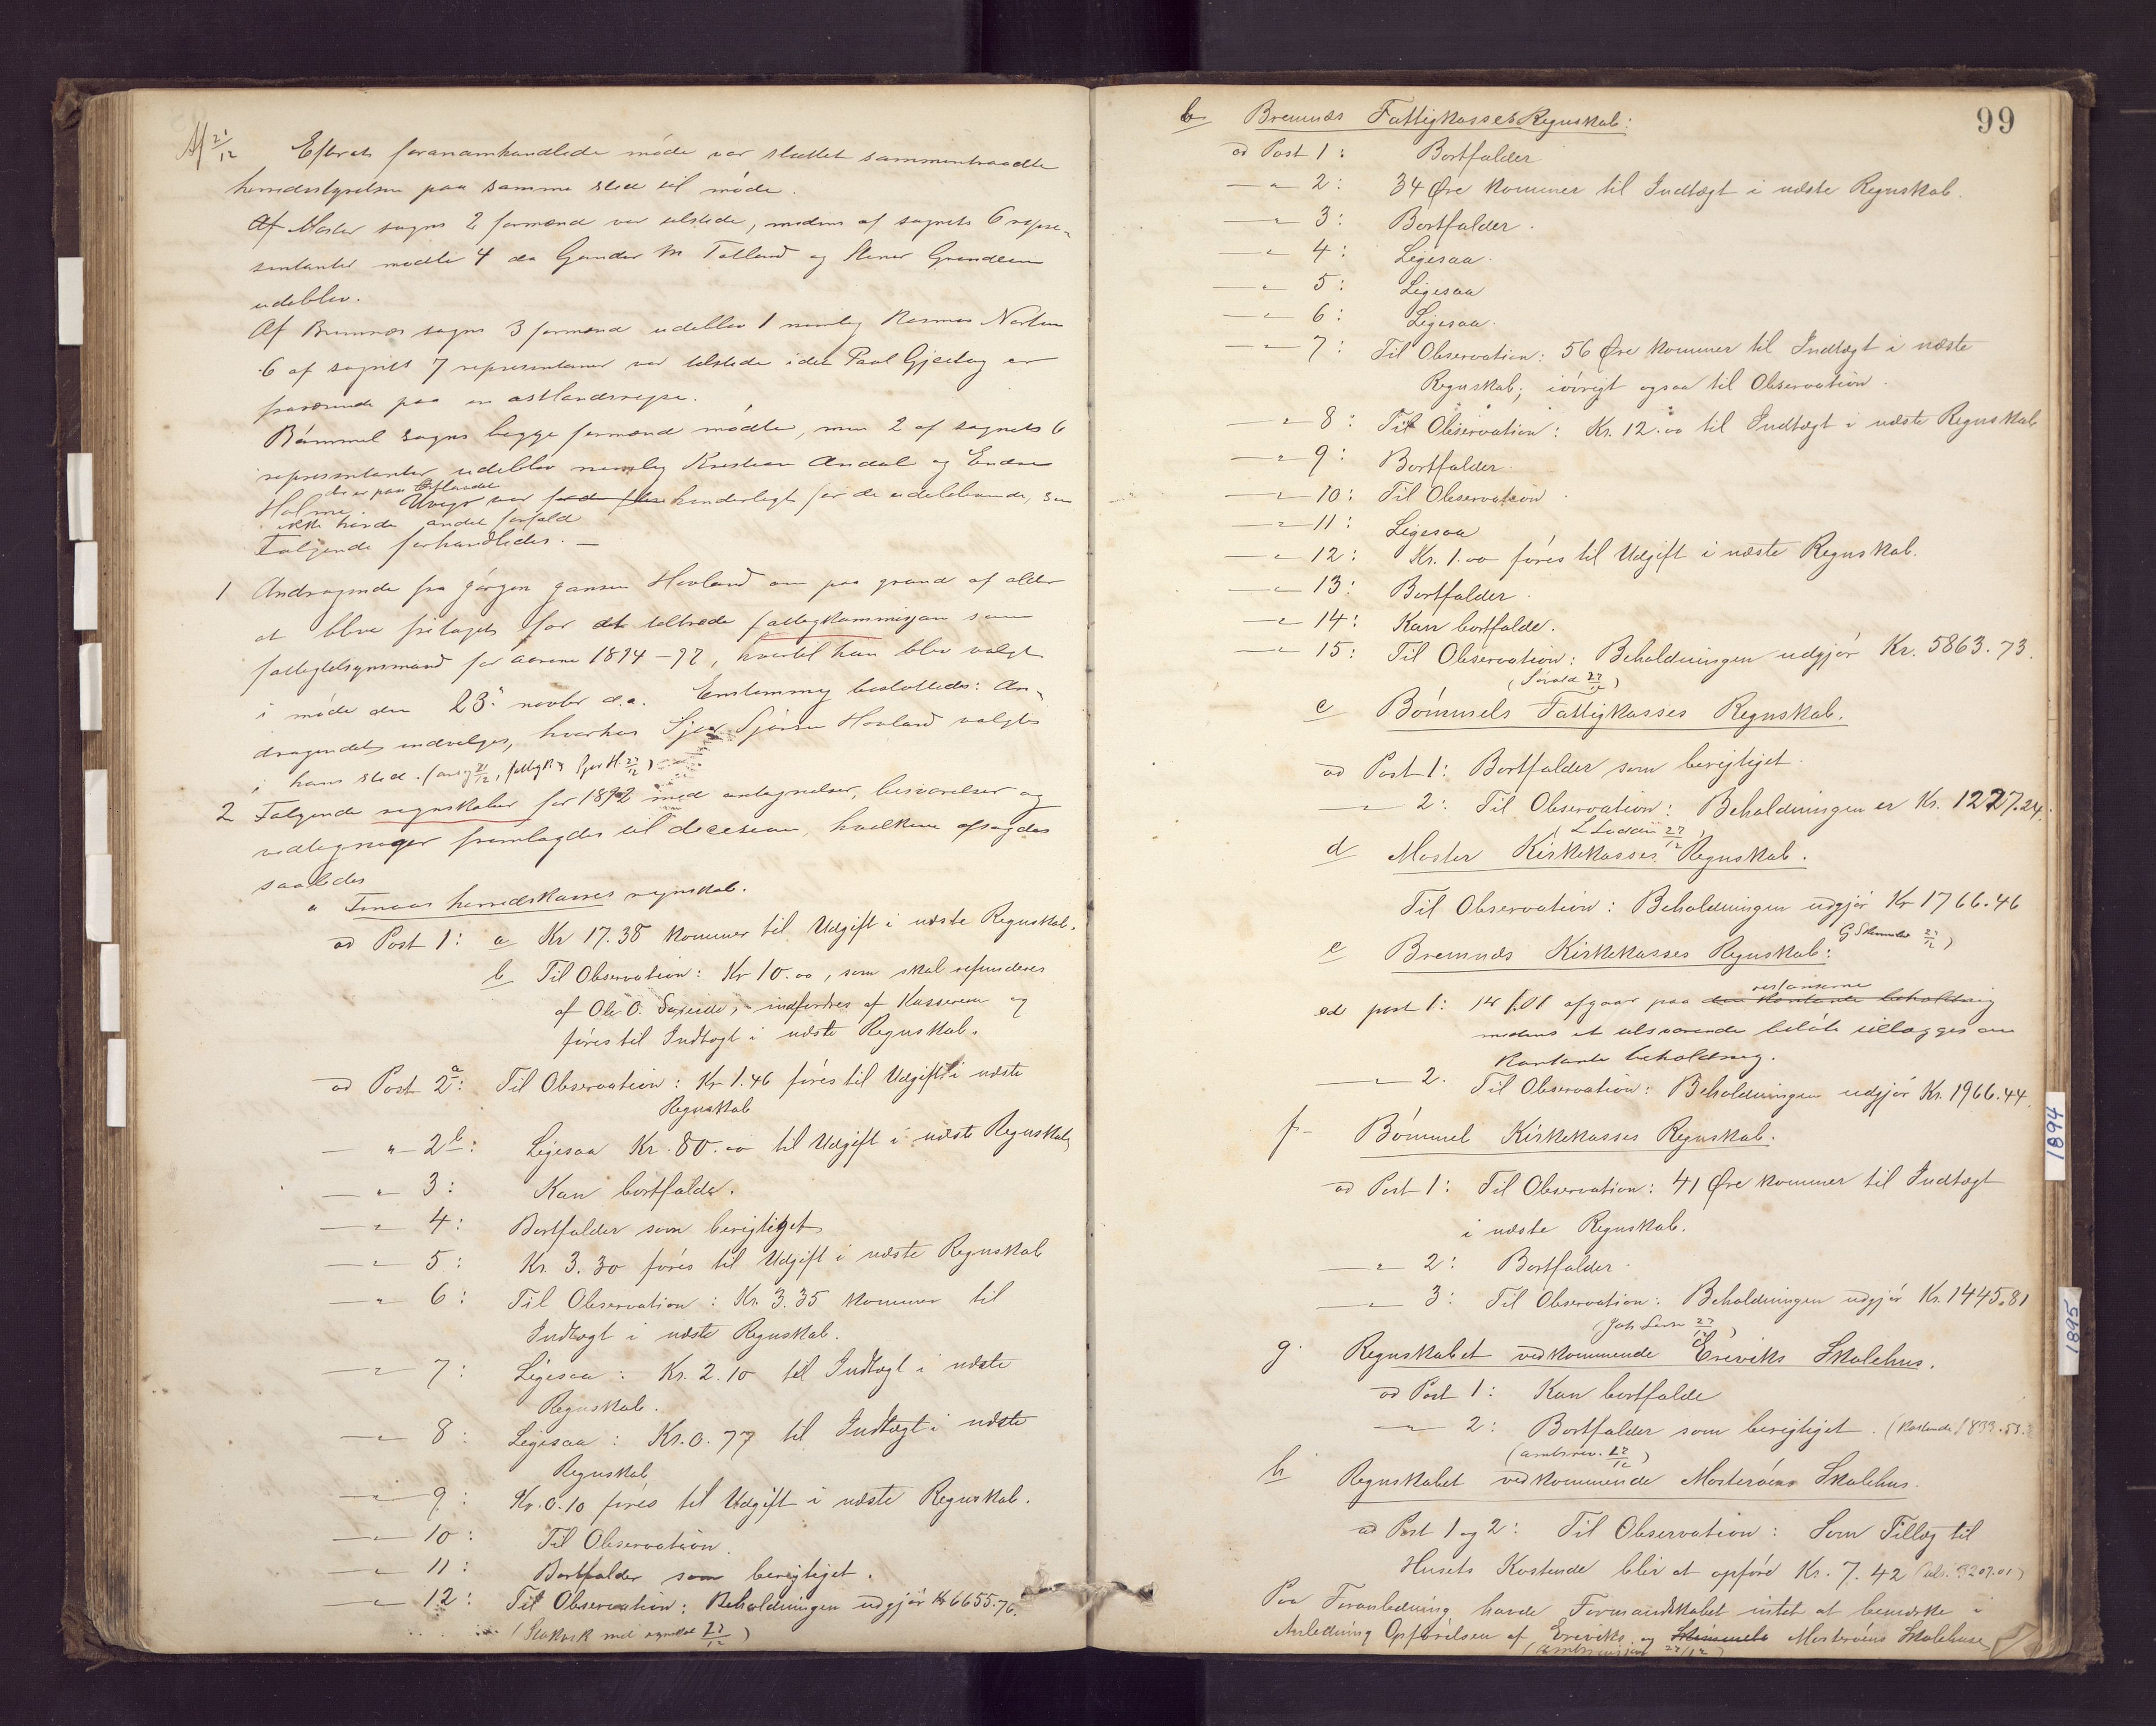 Af 21/12
Efterat foranamhandlede møde var sluttet sammentraadte
herredsstyrelsen paa samme sted til møde.
Af Moster sogns 2 formænd var tilstede, medens af sognets 6 repre-
sentanter mødte 4 da Gunder M Totland og Stener Grindeim
udeblev.
Af Bremnæs sogns 3 formænd udeblev 1 nemlig Rasmus Nortun
6 af sognets 7 representaner var tilstede idet Paul Gjerlag er
fraværende paa en østlandsreise.
Bømmel sogns begge formænd mødte, men 2 af sognets 6
representanter udeblev nemlig Kristian Andal og Endre
der er paa Østlandet
Holme. Uveir var hinderligt for de udeblevende, som
ikke havde andet forfald
Følgende forhandledes. —
1 Andragende fra Jørgen Jansen Hovland om paa grund af alder
at blive fritaget for at tiltræde fattigkommisjon som
fattigtilsynsmand for aarene 1894-97, hvortil han blev valgt
i møde den 23. novbr d.a. Enstemmig besluttedes: An-
dragendet indvilges, hvorhos Sjur Sjursen Hovland valgtes
i hans sted. (ansøg 27/12, fattigk. & Sjur H. 27/12)
2 Følgende regnskaber for 1892 med antegnelser, besvarelser og
vedtegninger fremlagdes til decision, hvilken afsagdes
saaledes
a Finaas herredskasses regnskab.
ad Post 1: a Kr 17.38 kommer til Udgift i næste Regnskab.
b Til Observation: Kr 10.00, som skal refunderes
af Ole O. Søreide, indfordres af Kassereren og
føres til Indtægt i næste Regnskab.
ad Post 2a: Til Observation: Kr 1.46 føres til Udgift i næste
Regnskab
— " — 2b: Ligesaa Kr. 80.00 til Udgift i næste Regnskab
— " — 3: Kan bortfalde.
— " — 4: Bortfalder som berigtiget
— " — 5: Kr. 3.30 føres til Udgift i næste Regnskab
— " — 6: Til Observation: Kr. 3.35 kommer til
Indtægt i næste Regnskab.
— " — 7: Ligesaa: Kr. 2.10 til Indtægt i næste
Regnskab.
— " — 8: Ligesaa: Kr. 0.77 til Indtægt i næste
Regnskab
— " — 9: Kr. 0.10 føres til Udgift i næste Regnskab.
— " — 10: Til Observation.
— " — 11: Bortfalder som berigtiget.
— " — 12: Til Observation: Beholdningen udgjør Kr 6655.76.
27/12)
99
b Bremnæs Fattigkasses Regnskab:
ad Post 1: Bortfalder
— " — 2: 34 Øre kommer til Indtægt i næste Regnskab.
— " — 3: Bortfalder.
— " — 4: Ligesaa.
— " — 5: Ligesaa
— " — 6: Ligesaa.
— " — 7: Til Observation: 56 Øre kommer til Indtægt i næste
Regnskab; iøvrigt ogsaa til Observation.
— " — 8: Til Observation: Kr. 12.00 til Indtægt i næste Regnskab
— " — 9: Bortfalder.
— " — 10: Til Observation.
— " — 11: Ligesaa
— " — 12: Kr. 1.00 føres til Udgift i næste Regnskab.
— " — 13: Bortfalder.
— " — 14: Kan bortfalde.
— " — 15: Til Observation: Beholdningen udgjør Kr. 5863.73.
27/12)
c Bømmels Fattigkasses Regnskab.
ad Post 1: Bortfalder som berigtiget.
— " — 2: Til Observation: Beholdningen er Kr. 1227.24.
27/12)
d Moster Kirkekasses Regnskab.
Til Observation: Beholdningen udgjør Kr 1766.46
27/12)
e Bremnæs Kirkekasses Regnskab:
restanserne
ad post 1: kr 1.01 afgaar paa den kontante beholdning
medens et tilsvarende beløb tillægges den
kontante beholdning.
— " — 2. Til Observation: Beholdningen udgjør Kr. 1966.44.
f Bømmel Kirkekasses Regnskab.
ad Post 1: Til Observation: 41 Øre kommer til Indtægt
i næste Regnskab.
— " — 2: Bortfalder.
— " — 3: Til Observation: Beholdningen udgjør Kr. 1445.81
27/12)
g. Regnskabet vedkommende Ereviks Skolehus.
ad Post 1: Kan bortfalde
— " — 2: Bortfalder som berigtiget. (Kostende 1833.53.)
(amtsrev. 27/12)
h Regnskabet vedkommende Mosterøens Skolehus.
ad Post 1 og 2: Til Observation: Som Tillæg til
Husets Kostende blir at opføre Kr. 7.42 (3207.01)
Paa Foranledning havde Formandskabet intet at bemærke i
Anledning Opførelsen af Ereviks og Mosterøens Skolehuse
(amtsrevisjon 27/12)
1894
1895